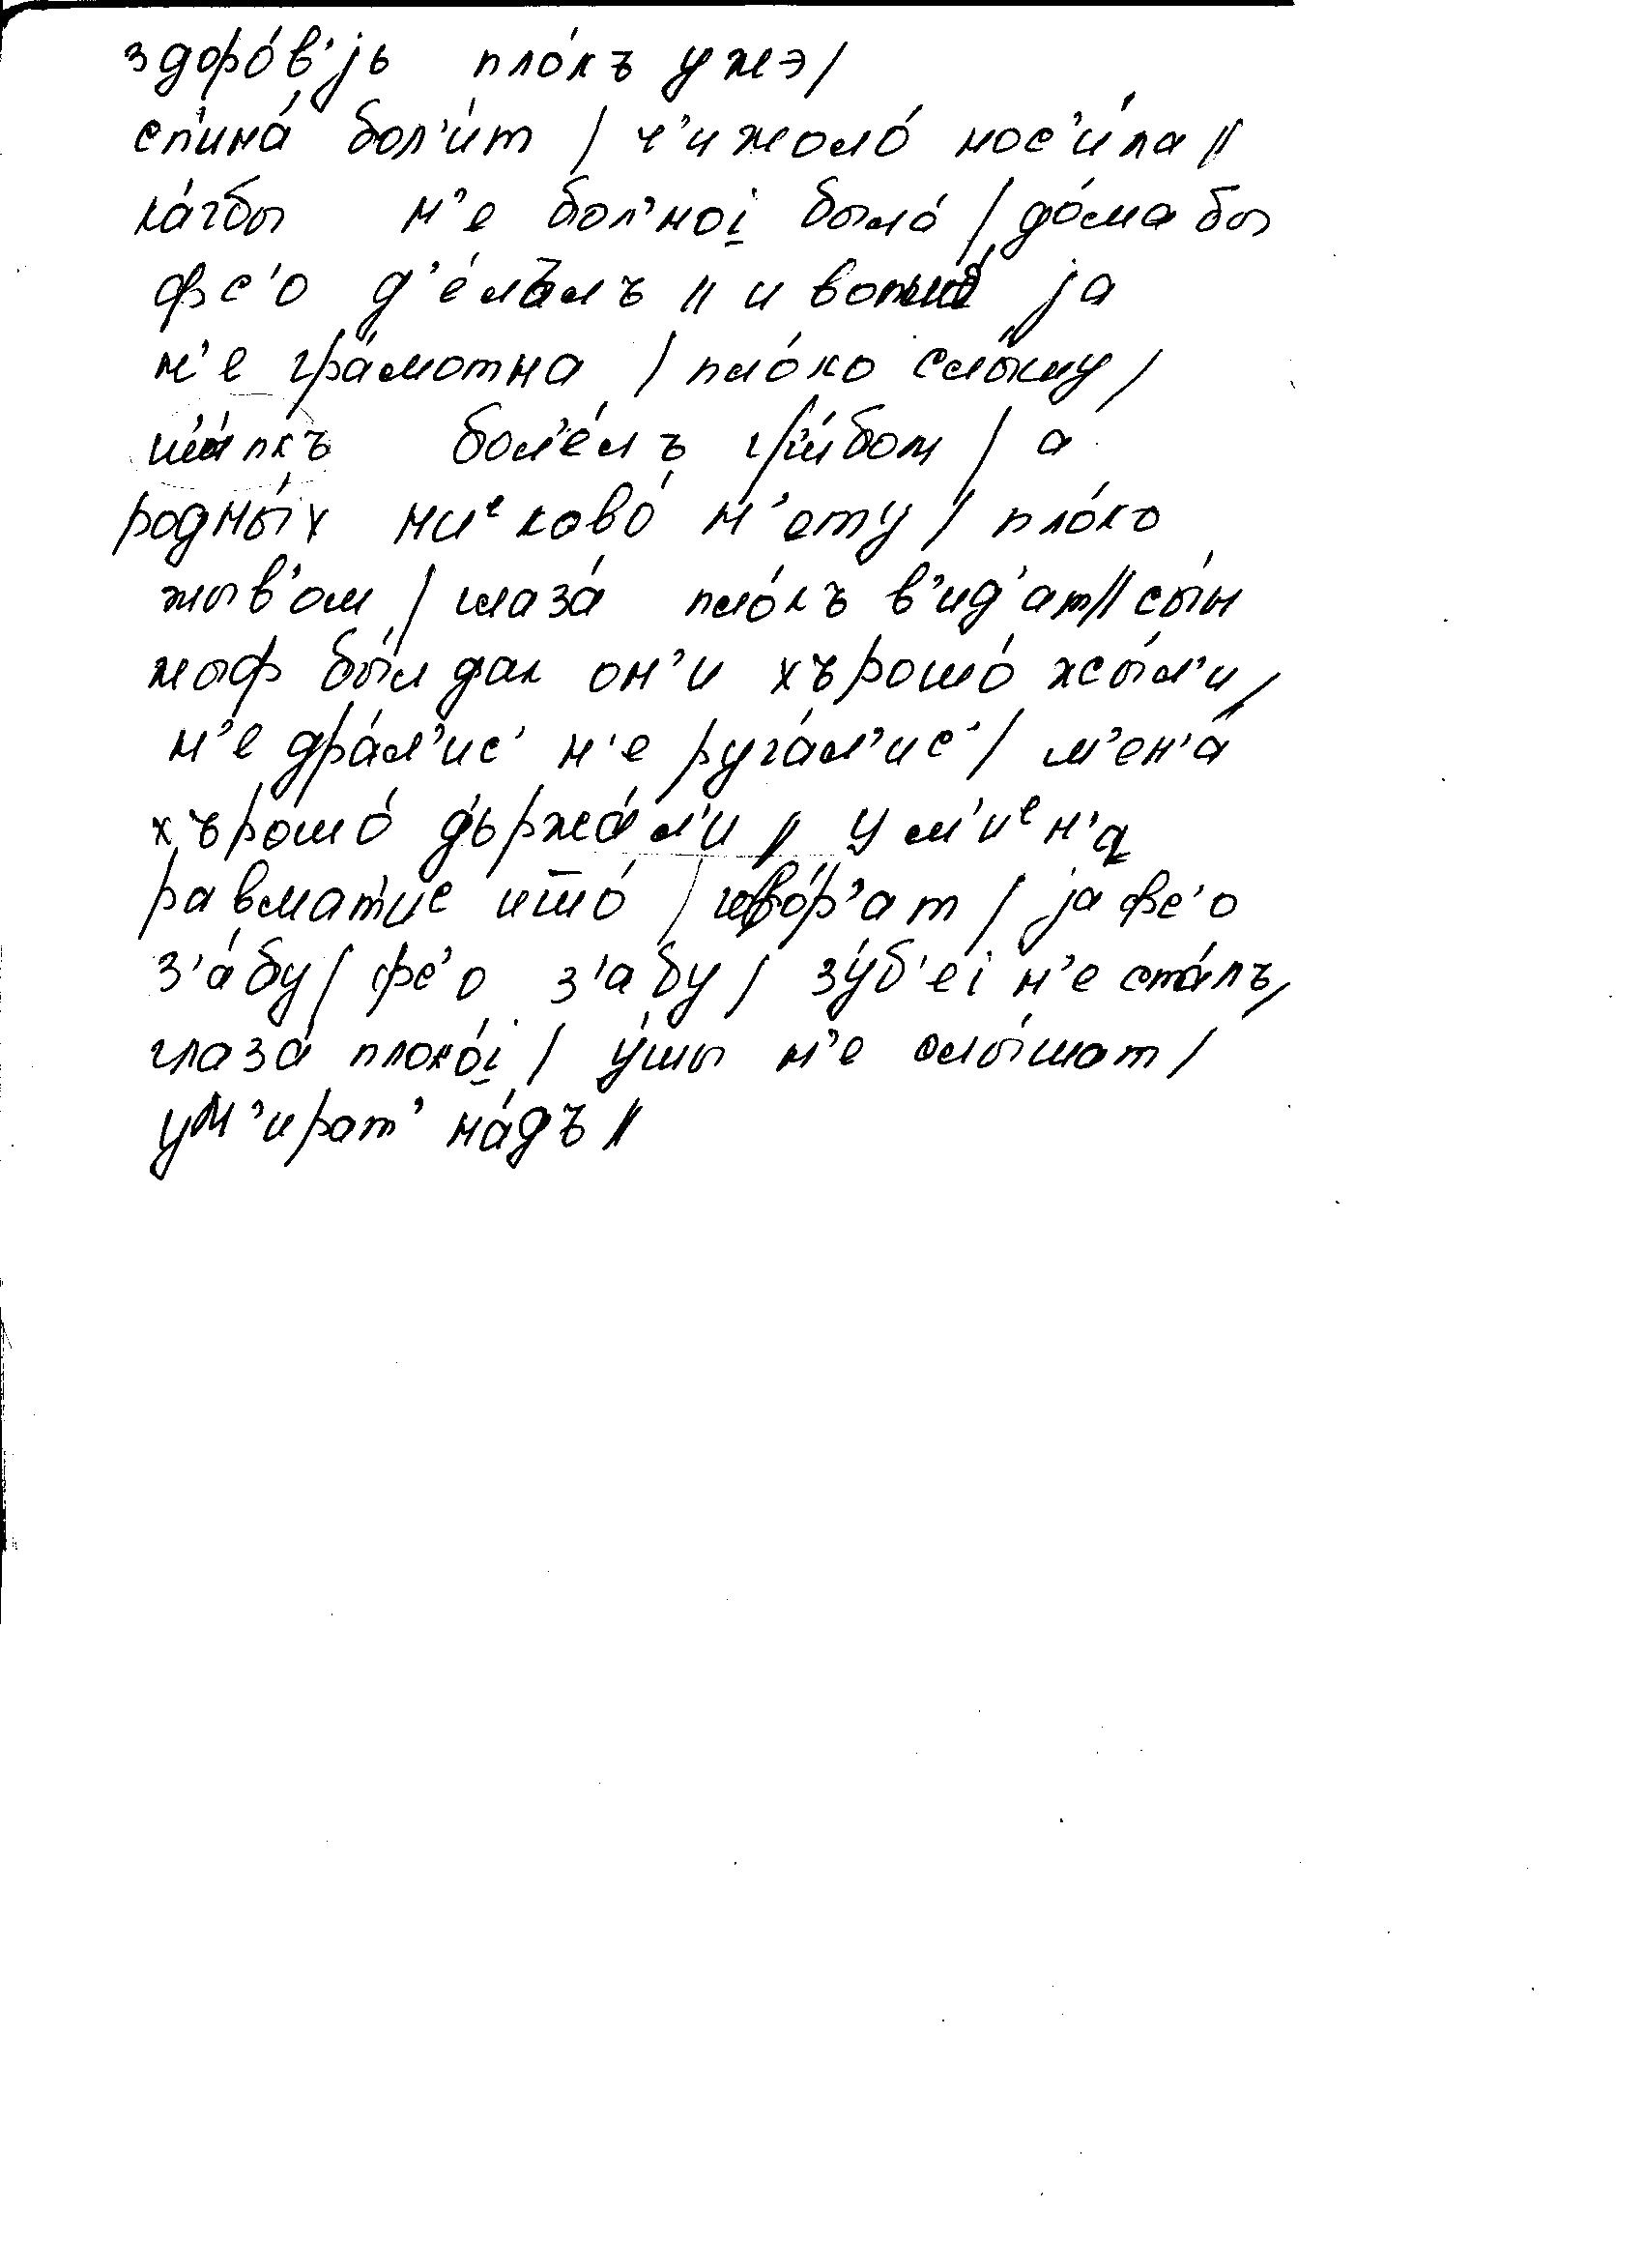 здоро́в’јь пло́къ ужэ/
сп’ина́ бол’и́т / ч’ижоло́ нос’и́ла //
ка́гбы н’е бол’ноi̯ была́ / до́ма бы
фс’о д’е́лълъ // и ја
н’е гра́мотна / пло́ко слы́шу /
ша́пкъ бол’е́лъ гр’и́бом / а
родны́х ниᵉково́ н’ету / пло́ко
жыв’ом / глаза́ пло́къ в’ид’ат // сы́н
жыф бы́л дак он’и хърошо́ жы́л’и /
н’е дра́л’ис’ н’е руга́л’ис’ / м’ен’а́
хърошо́ д’ьржа́л’и // у м’иᵉн’а
равмат’ис што́ / говор’ат / ја фс’о
з’а́бу / фс’о з’абу / зу́б’еi н’е ста́лъ /
глаза́ плоко́i̯ / у́шы н’е слы́шат /
ум’ират’ на́дъ //